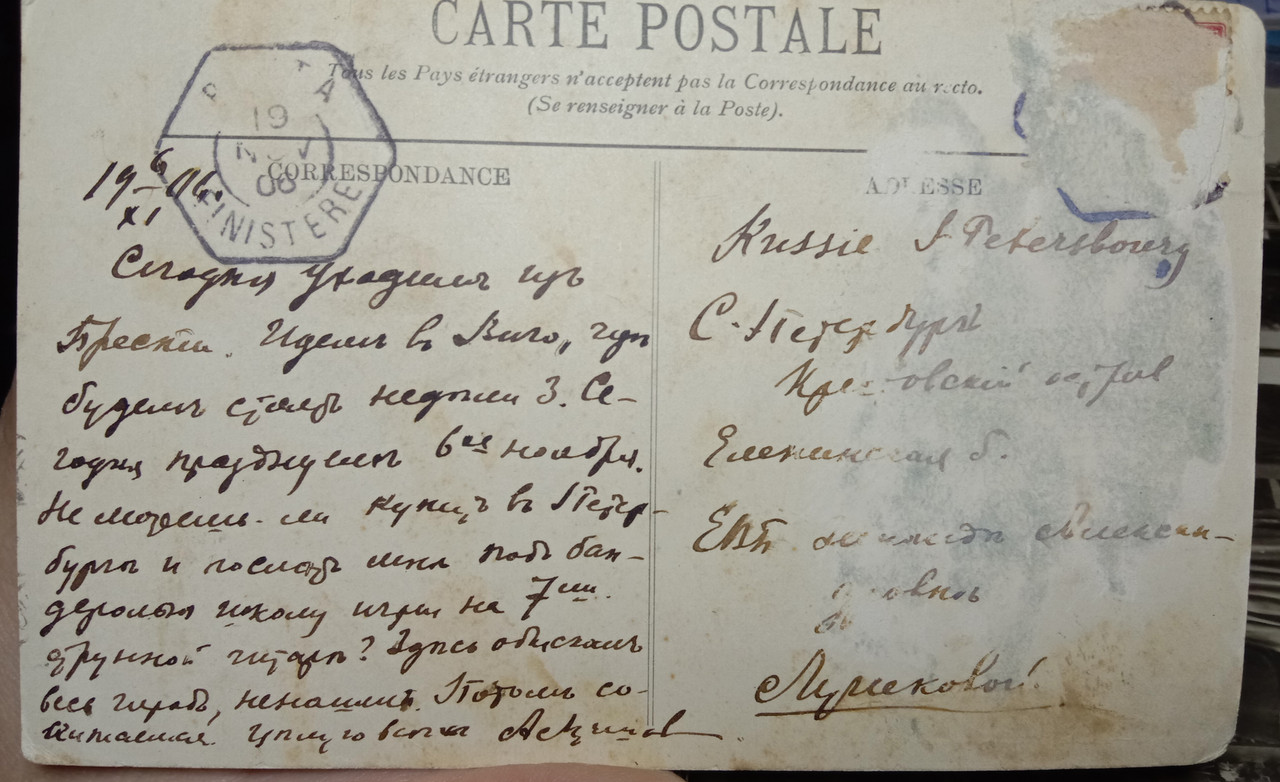 CARTE POSTALE
Tous les Pays étrangers n'acceptent pas la Correspondance au recto.
(Se renseigner à la Poste).
19
NOV
06
FINISTERE
CORRESPONDANCE
19 6/XI 06.
Сегодня уходимъ изъ
Бреста. Идемъ въ Виго, гдѣ
будемъ стоять недѣли 3. Се-
годня празднуемъ 6ое ноября.
Не можешь-ли купить въ Петер-
бургѣ и послать мнѣ подъ бан-
деролью школу игры на 7ми
струнной гитарѣ? Здѣсь обыскалъ
весь городъ, ненашелъ. Потомъ со-
читаемся. Цѣлую
ADRESSE
Russie S. Petersbourg
С. Петербургъ
Крестовскій островъ
Еленинская
ЕВБ Александ-
ровнѣ